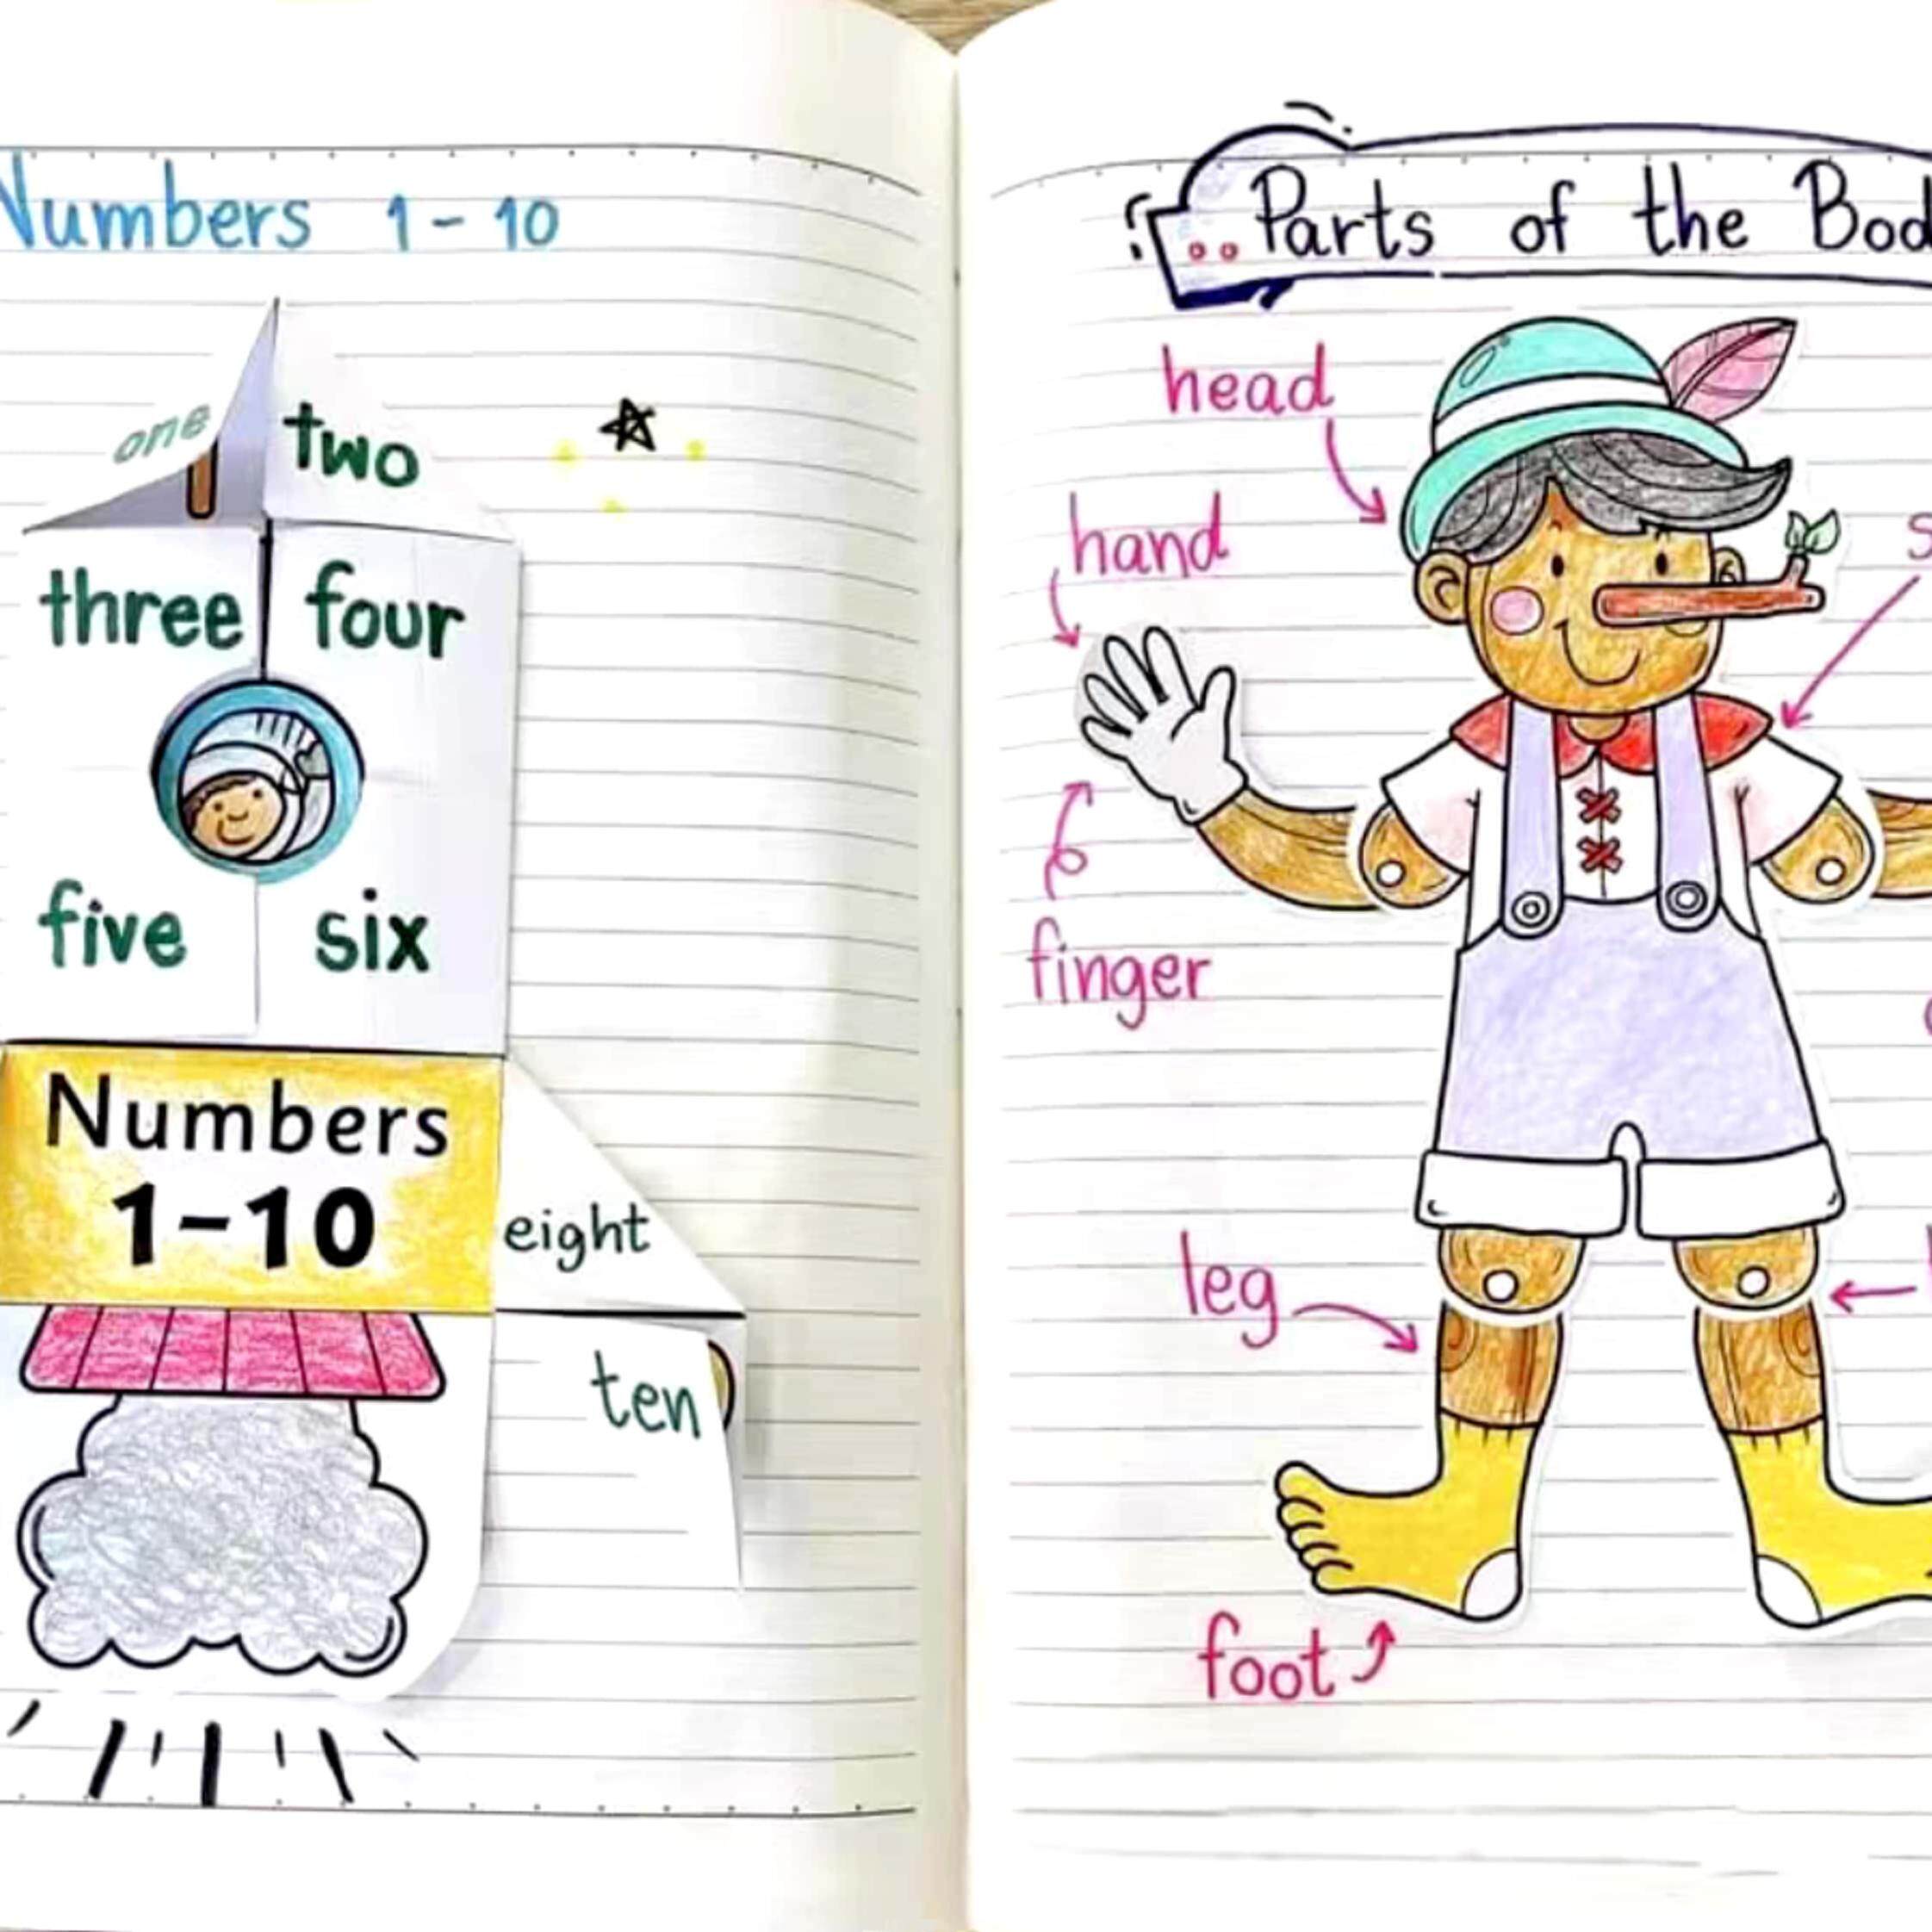 Numbers 1-10
one
two
three four
five six
Numbers
1-10
eight
ten
Parts of the Bod
head
hand
finger
leg
foot